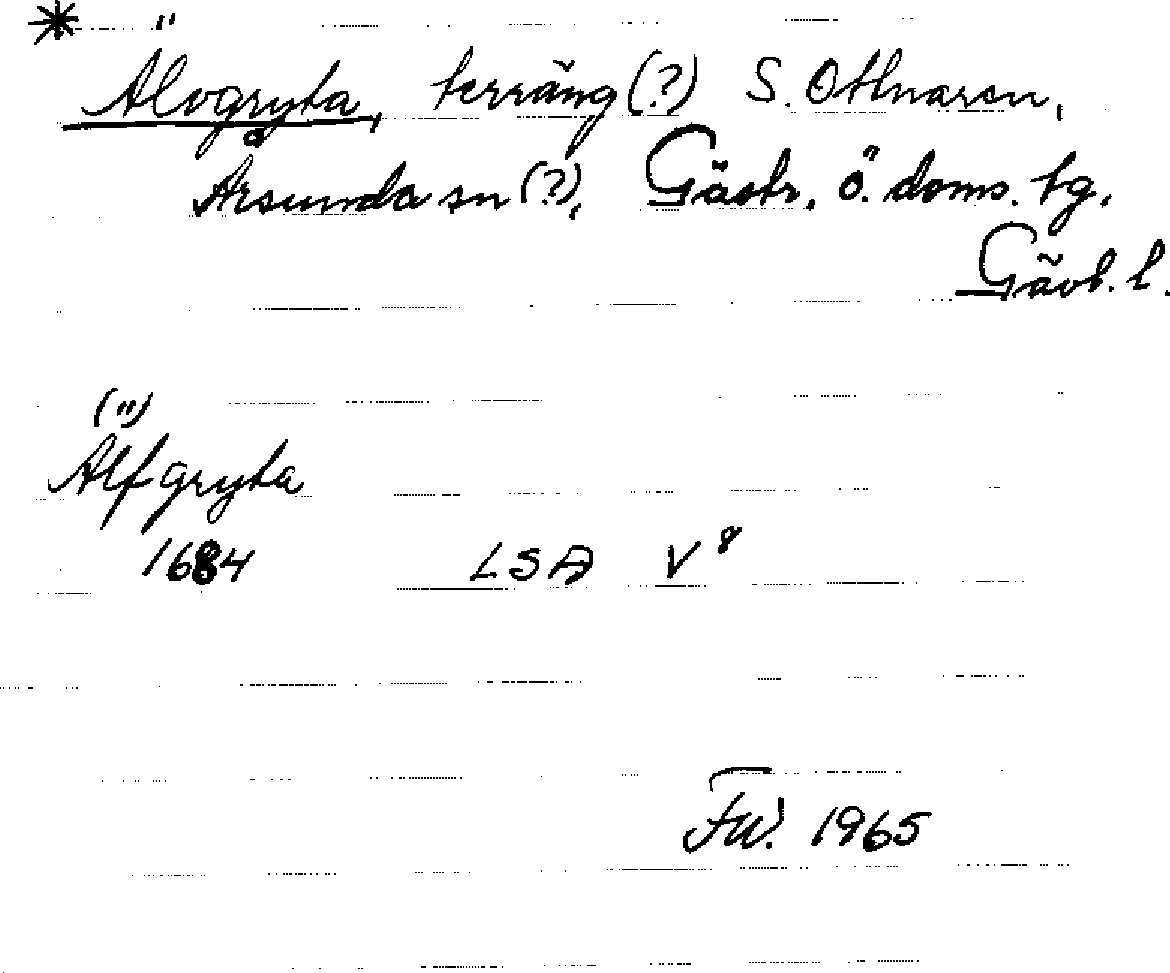 * Älvgryta, terräng (?) S. Ottnaren,
Årsunda sn (?), Gästr. ö. doms. tg,
Gävl. l.
(")
Älfgryta
1684 LSA V⁸
FW. 1965